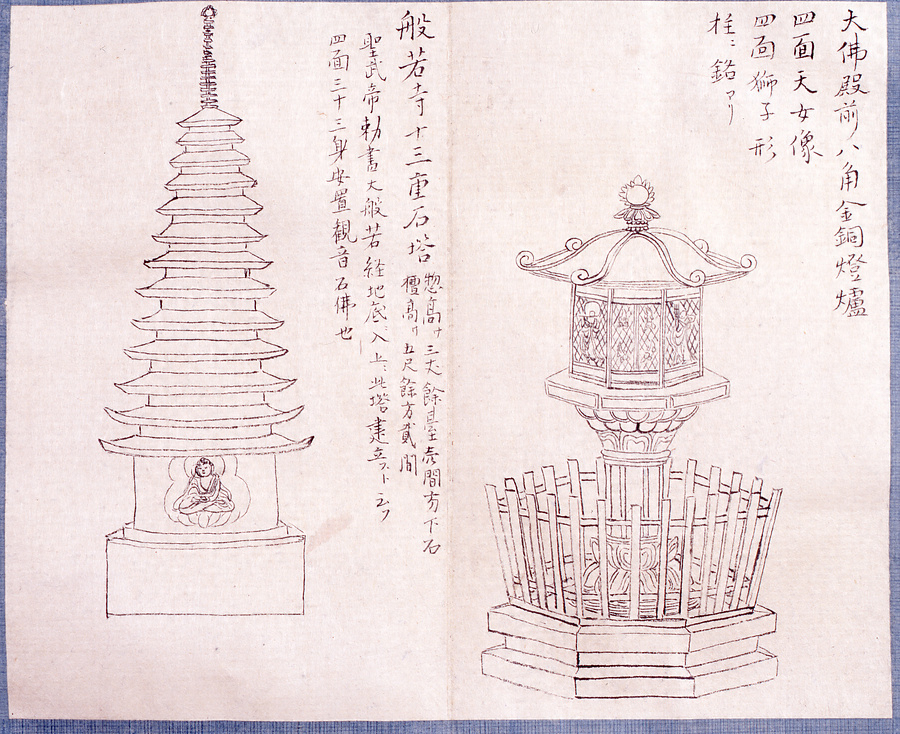 大佛殿前ノ八角金銅燈爐
四面天女像
四面獅子形
柱ニ銘アリ
般若寺十三重石塔
惣高サ三丈餘臺壱間方下石
檀高サ五尺餘方貳間
聖武帝勅書大般若経地底ニ入上ニ此塔建立ト云フ
四面三十三身安置観音石佛也